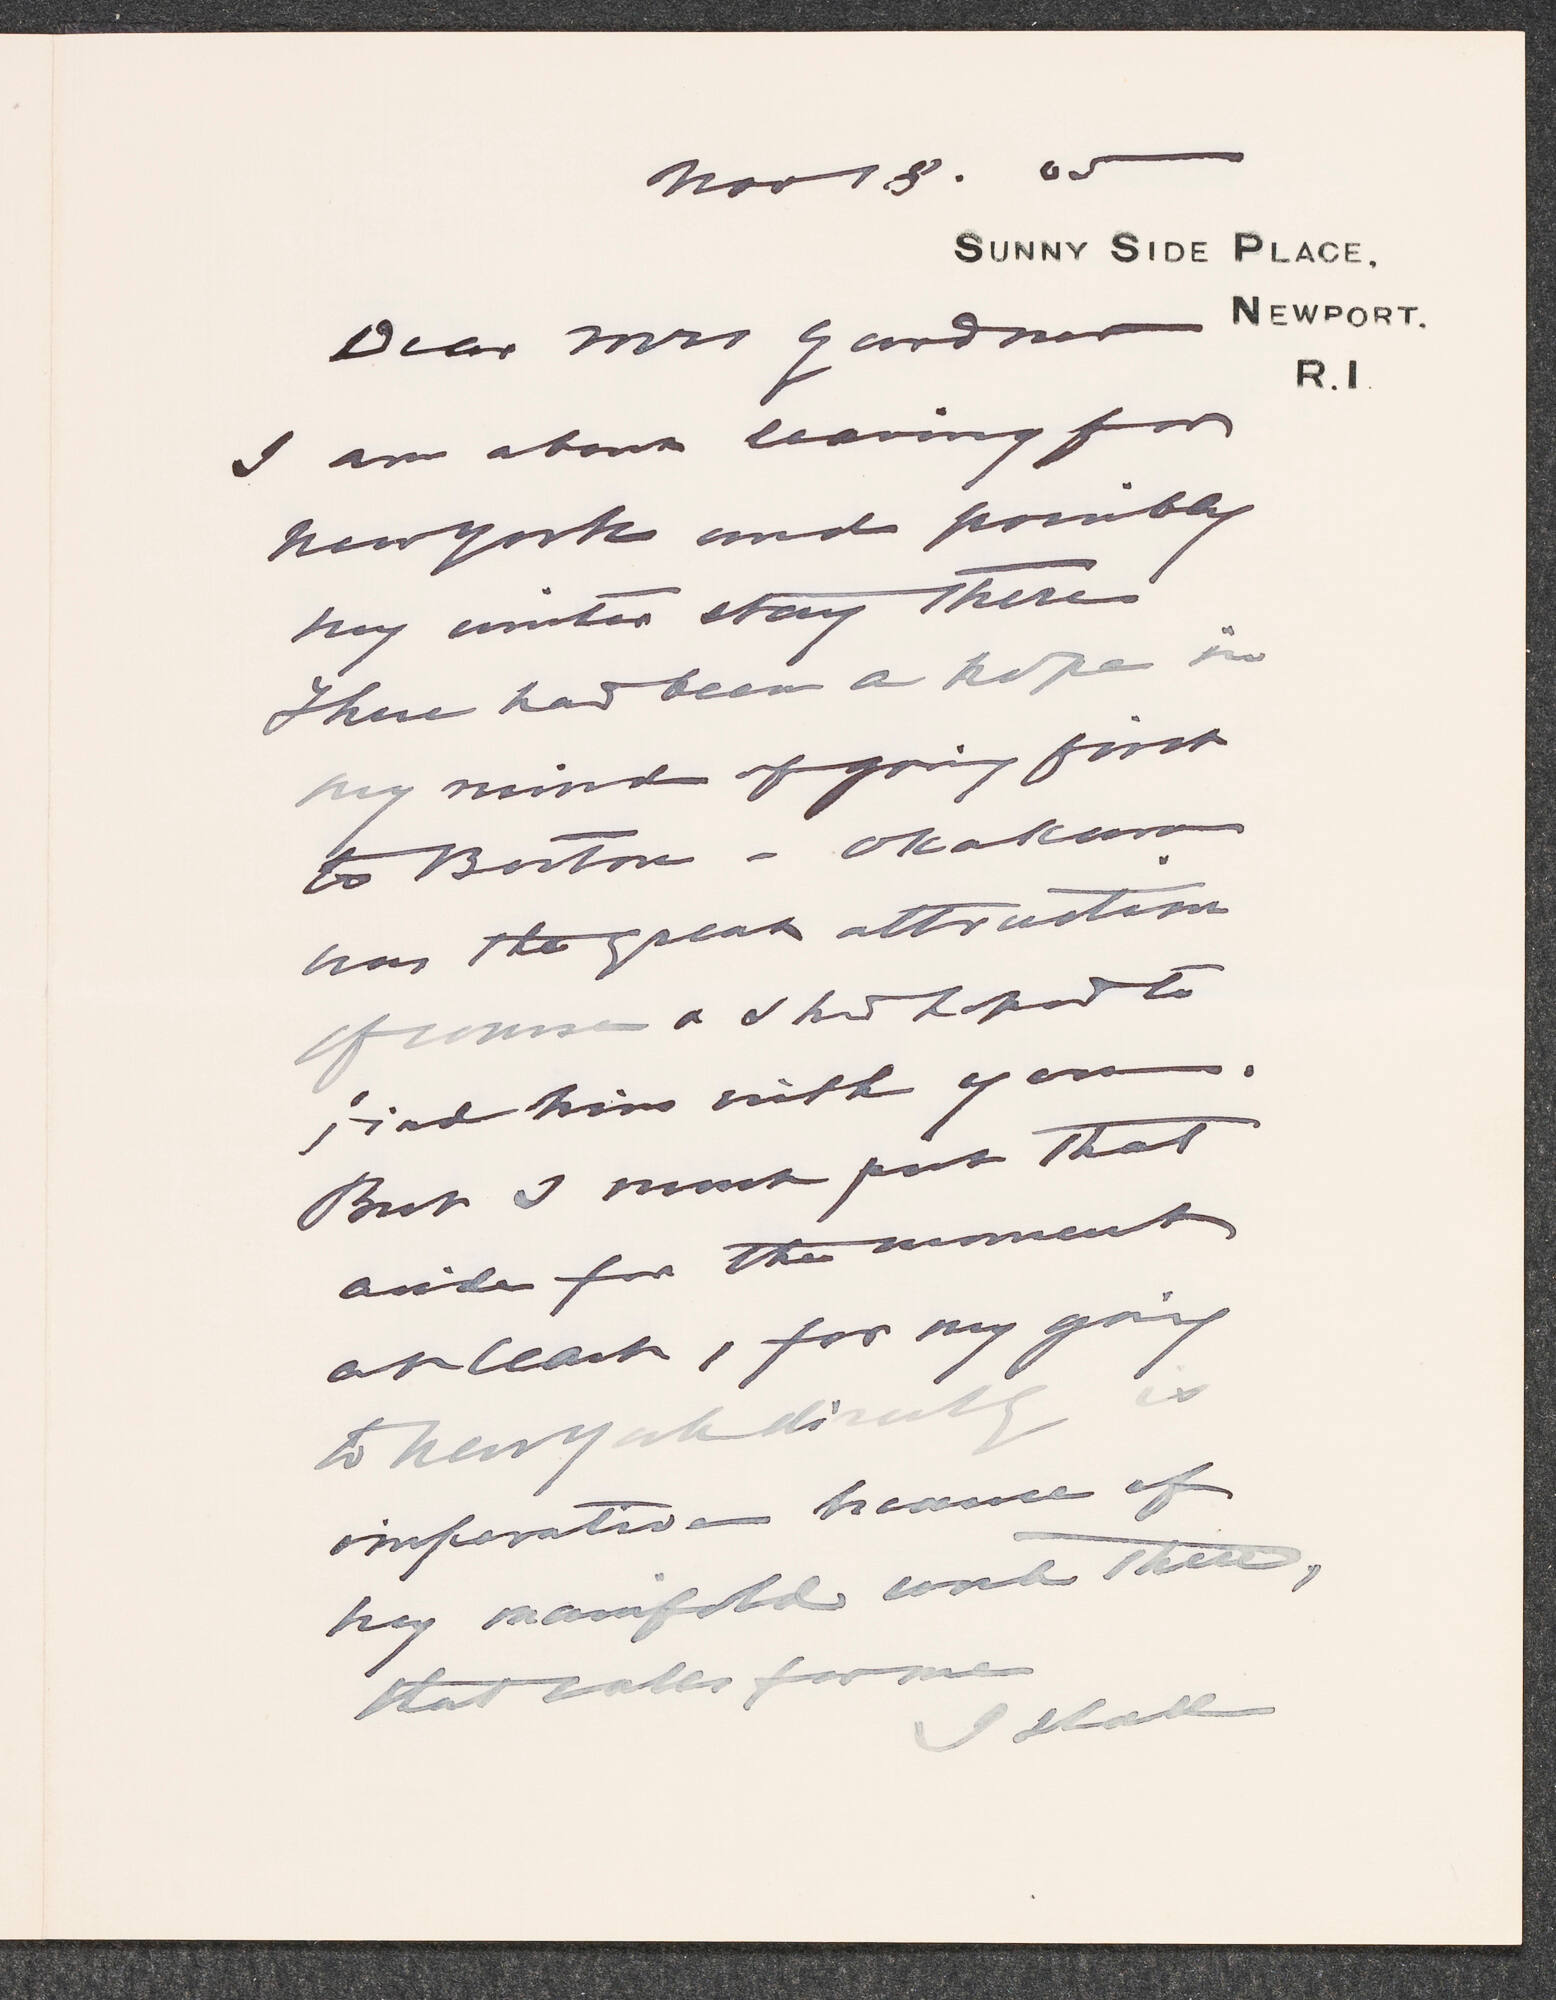 Nov 18. 05
SUNNY SIDE PLACE,
NEWPORT.
R.I.
Dear Mrs Gardner
I am about leaving for
New York and possibly
my winter stay there
There had been a hope in
my mind of going first
to Boston - Okakura
was the great attraction
of course & I had hoped to
find him with you.
But I must put that
aside for the moment
at least, for my going
to New York directly is
imperative because of
my manifold work there,
that calls for me
I shall